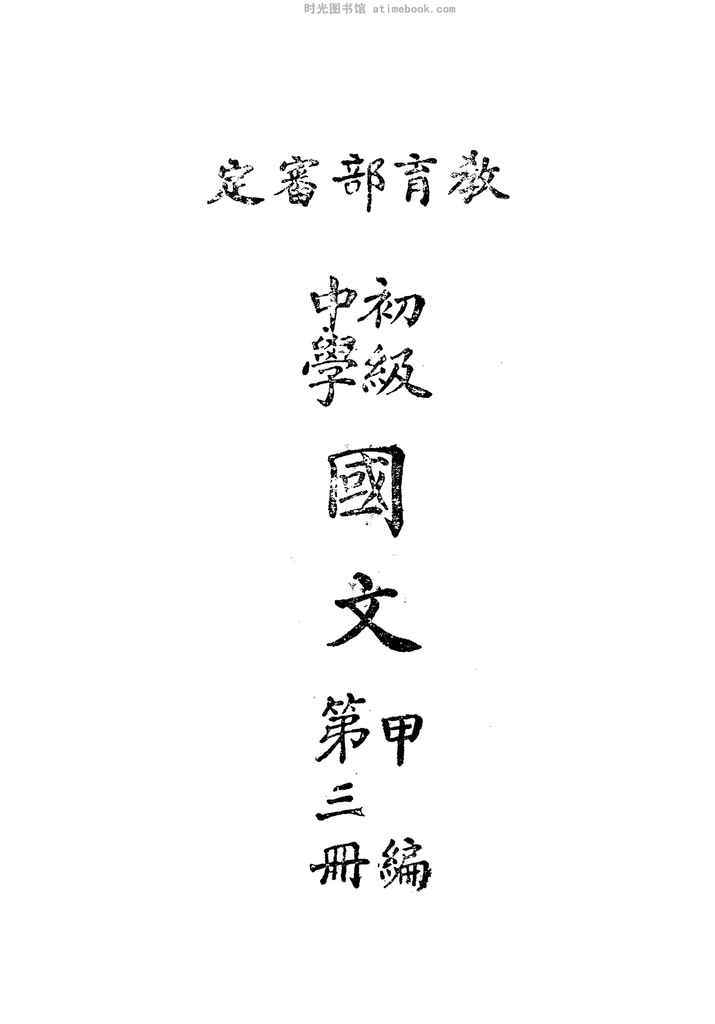 时光图书馆 atimebook.com
教育部審定
初級
中學
國文
甲編
第三冊